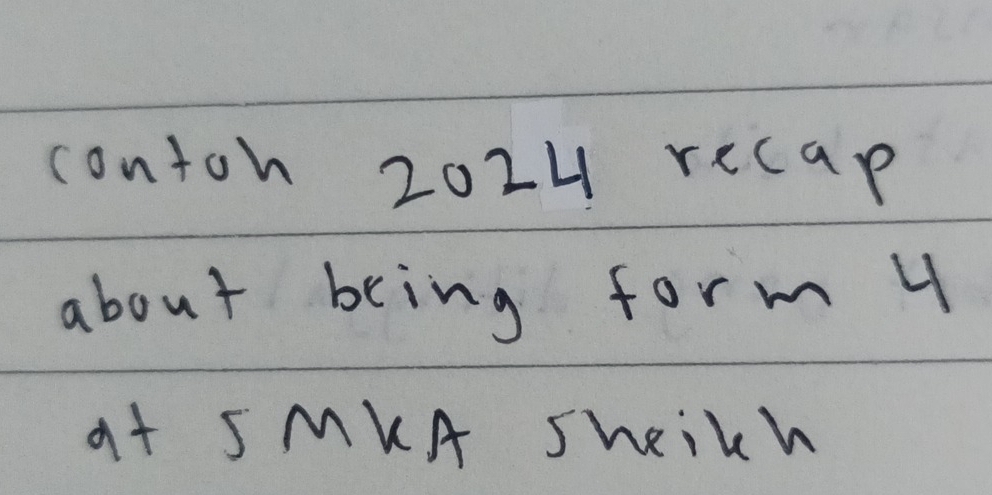 contoh 2024 recap
about being form 4
at SMKA Sheikh